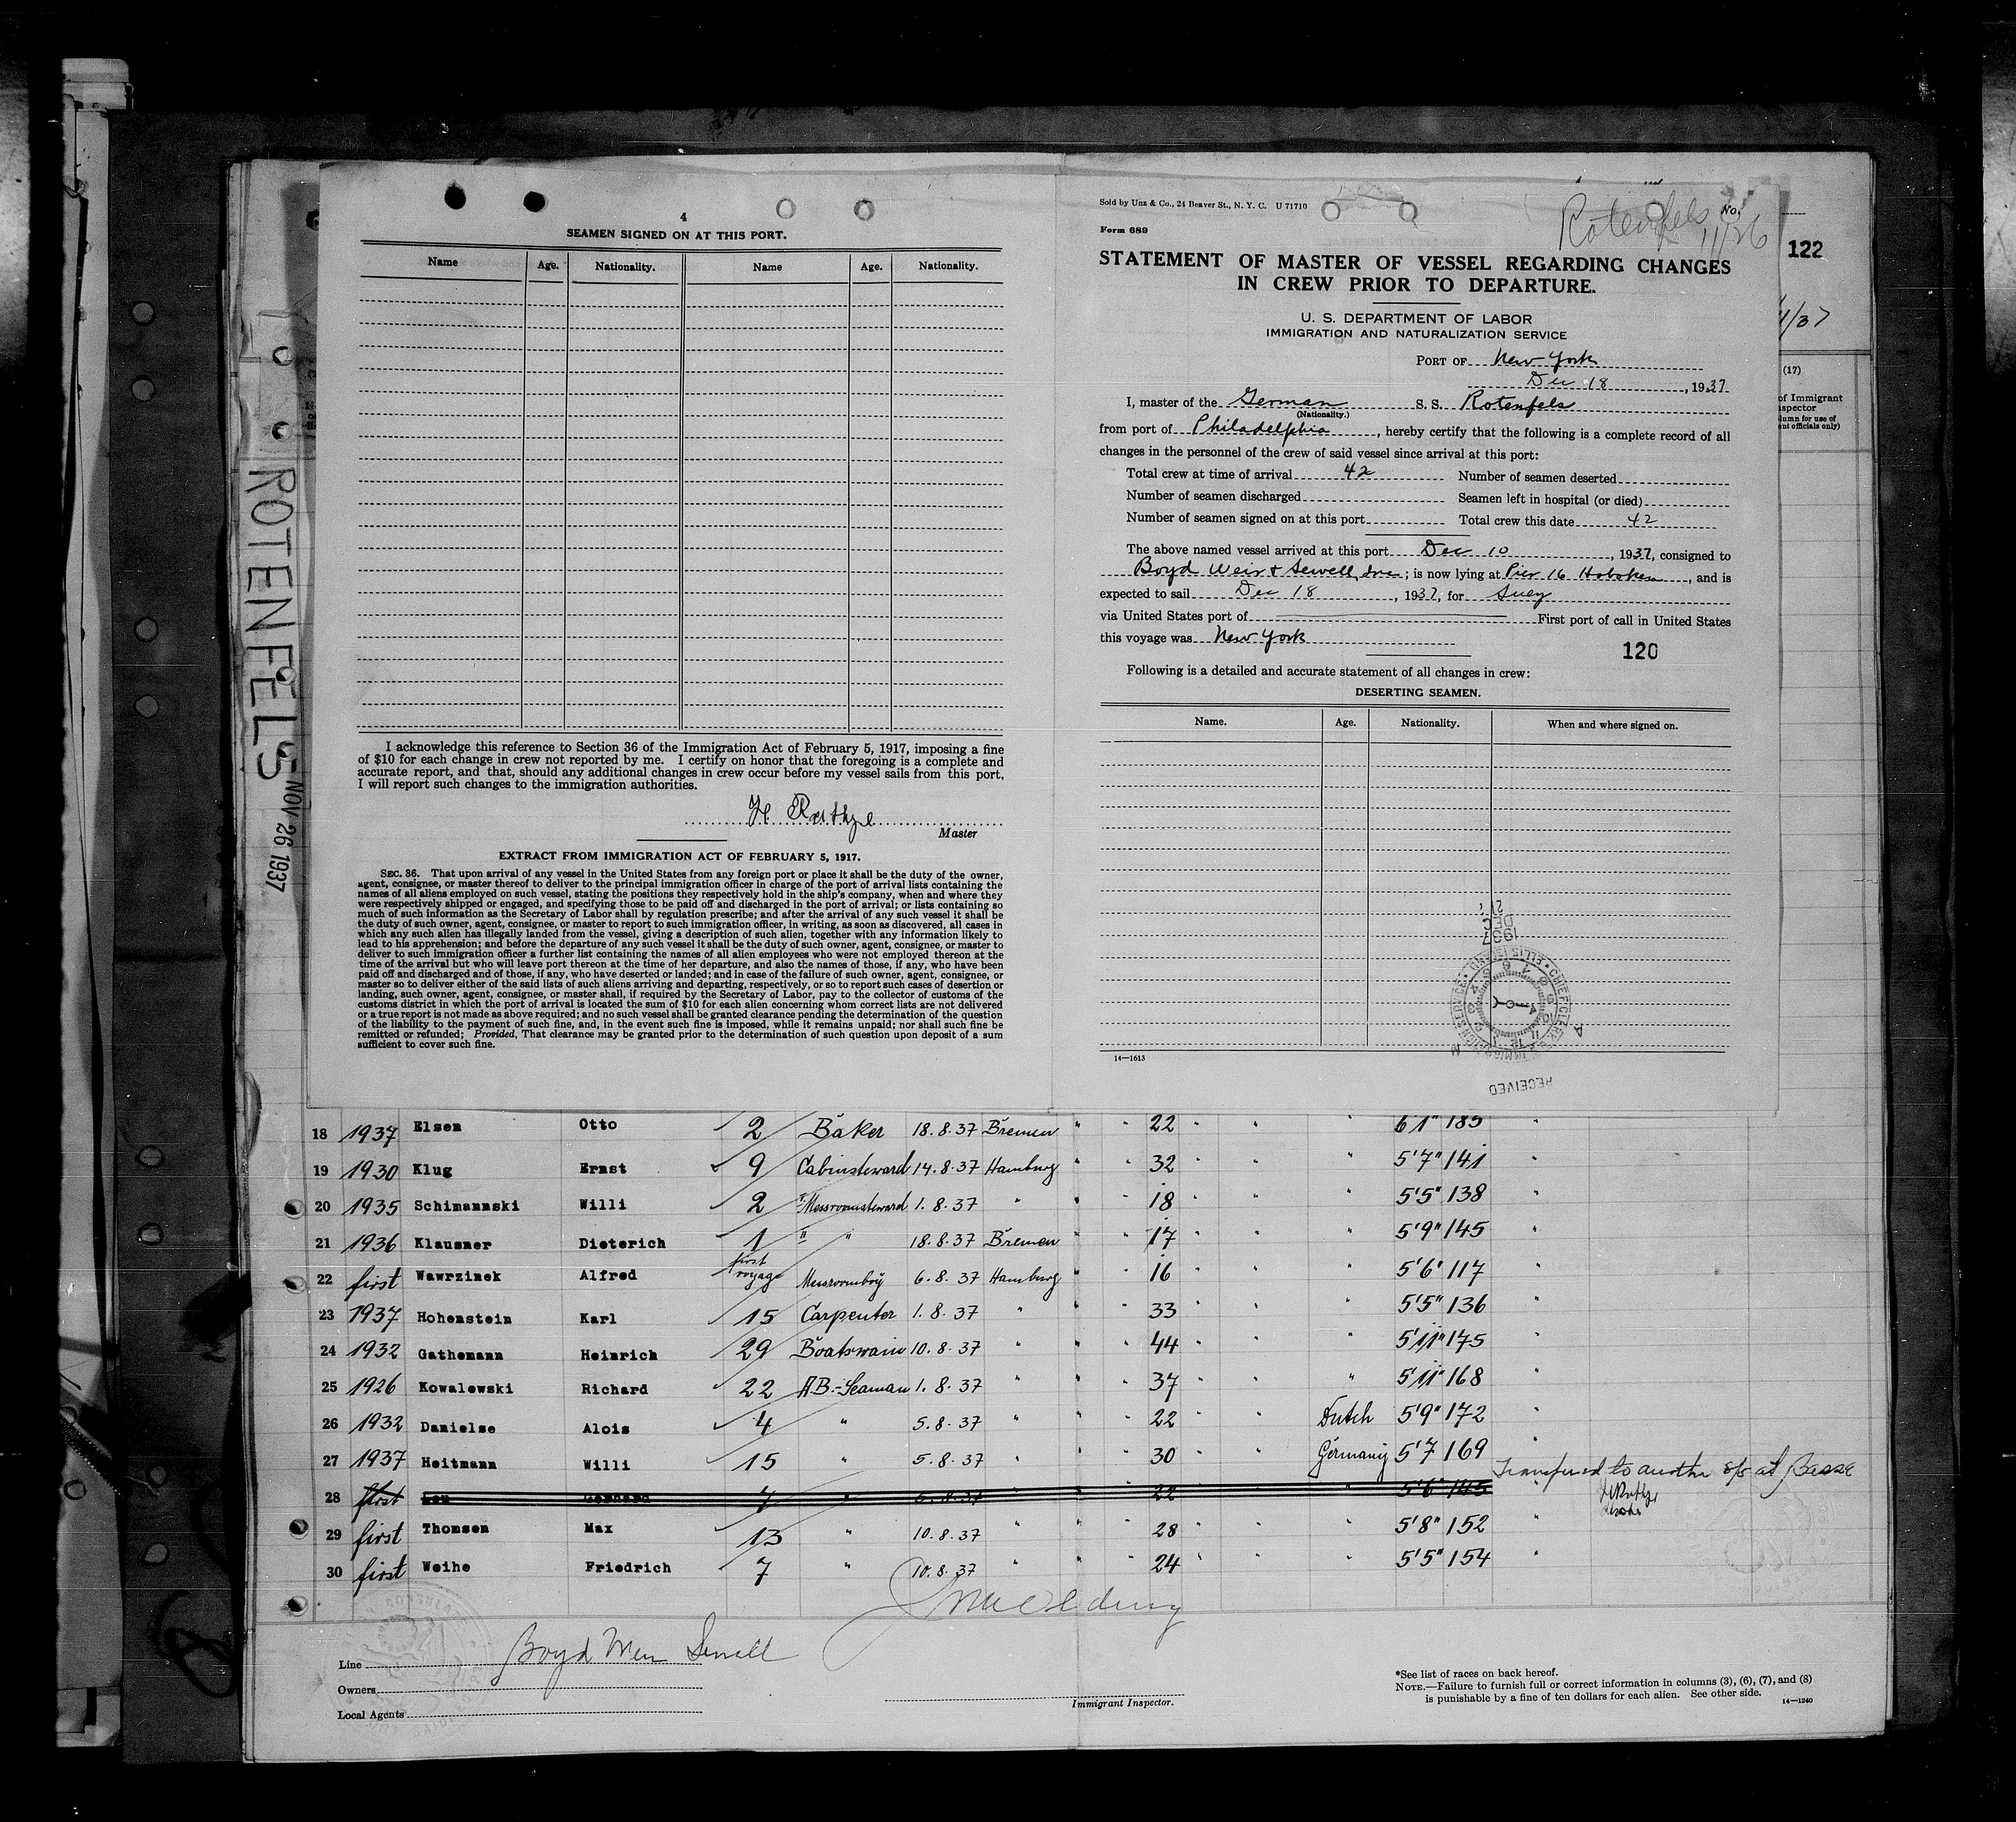 ROTENFELS
NOV 26 1937
4
SEAMEN SIGNED ON AT THIS PORT.
Name Age. Nationality. Name Age. Nationality.
I acknowledge this reference to Section 36 of the Immigration Act of February 5, 1917, imposing a fine
of $10 for each change in crew not reported by me. I certify on honor that the foregoing is a complete and
accurate report, and that, should any additional changes in crew occur before my vessel sails from this port,
I will report such changes to the immigration authorities.
H Rathge
Master
EXTRACT FROM IMMIGRATION ACT OF FEBRUARY 5, 1917.
SEC. 36. That upon arrival of any vessel in the United States from any foreign port or place it shall be the duty of the owner,
agent, consignee, or master thereof to deliver to the principal immigration officer in charge of the port of arrival lists containing the
names of all aliens employed on such vessel, stating the positions they respectively hold in the ship's company, when and where they
were respectively shipped or engaged, and specifying those to be paid off and discharged in the port of arrival; or lists containing so
much of such information as the Secretary of Labor shall by regulation prescribe; and after the arrival of any such vessel it shall be
the duty of such owner, agent, consignee, or master to report to such immigration officer, in writing, as soon as discovered, all cases in
which any such alien has illegally landed from the vessel, giving a description of such alien, together with any information likely to
lead to his apprehension; and before the departure of any such vessel it shall be the duty of such owner, agent, consignee, or master to
deliver to such immigration officer a further list containing the names of all alien employees who were not employed thereon at the
time of the arrival but who will leave port thereon at the time of her departure, and also the names of those, if any, who have been
paid off and discharged and of those, if any, who have deserted or landed; and in case of the failure of such owner, agent, consignee, or
master so to deliver either of the said lists of such aliens arriving and departing, respectively, or so to report such cases of desertion or
landing, such owner, agent, consignee, or master shall, if required by the Secretary of Labor, pay to the collector of customs of the
customs district in which the port of arrival is located the sum of $10 for each alien concerning whom correct lists are not delivered
or a true report is not made as above required; and no such vessel shall be granted clearance pending the determination of the question
of the liability to the payment of such fine, and, in the event such fine is imposed, while it remains unpaid; nor shall such fine be
remitted or refunded; Provided, That clearance may be granted prior to the determination of such question upon deposit of a sum
sufficient to cover such fine.
Sold by Unz & Co., 24 Beaver St., N. Y. C. U 71710
Rotenfels No.
11/26
Form 689
122
STATEMENT OF MASTER OF VESSEL REGARDING CHANGES
IN CREW PRIOR TO DEPARTURE.
U. S. DEPARTMENT OF LABOR
IMMIGRATION AND NATURALIZATION SERVICE
PORT OF New York
Dec 18, 1937
I, master of the German S. S. Rotenfels
(Nationality.)
from port of Philadelphia, hereby certify that the following is a complete record of all
changes in the personnel of the crew of said vessel since arrival at this port:
Total crew at time of arrival 42 Number of seamen deserted
Number of seamen discharged Seamen left in hospital (or died)
Number of seamen signed on at this port Total crew this date 42
The above named vessel arrived at this port Dec 10, 1937, consigned to
Boyd Weir & Sewell, Inc; is now lying at Pier 16 Hoboken, and is
expected to sail Dec 18, 1937, for Suez
via United States port of First port of call in United States
this voyage was New York
120
Following is a detailed and accurate statement of all changes in crew:
DESERTING SEAMEN.
Name. Age. Nationality. When and where signed on.
DEC
1937
CHIEF CLERK
ELLIS ISLAND
RECEIVED
14—1613
/37
(17)
of Immigrant
nspector
lumn for use of
ent officials only)
18 1937 Elsen Otto 2 Baker 18.8.37 Bremen " " 22 " " " 6'1" 185 "
19 1930 Klug Ernst 9 Cabinsteward 14.8.37 Hamburg " " 32 " " " 5'7" 141 "
20 1935 Schimannski Willi 2 Messroomsteward 1.8.37 " " " 18 " " " 5'5" 138 "
21 1936 Klausner Dieterich 1 " " 18.8.37 Bremen " " 17 " " " 5'9" 145 "
22 first Wawrzinek Alfred first voyage Messroomboy 6.8.37 Hamburg " " 16 " " " 5'6" 117 "
23 1937 Hohenstein Karl 15 Carpenter 1.8.37 " " " 33 " " " 5'5" 136 "
24 1932 Gathemann Heinrich 29 Boatswain 10.8.37 " " " 44 " " " 5'11" 175 "
25 1926 Kowalewski Richard 22 AB.-Seaman 1.8.37 " " " 37 " " " 5'11" 168 "
26 1932 Danielse Alois 4 " 5.8.37 " " " 22 " " Dutch 5'9" 172 "
27 1937 Heitmann Willi 15 " 5.8.37 " " " 30 " " Germany 5'7 169 "
28 first Gerhard 7 " 5.8.37 22 " 5'6" 145 " Transferred to another s/s at
29 first Thomsen Max 13 " 10.8.37 " " " 28 " " " 5'8" 152 "
30 first Weihe Friedrich 7 " 10.8.37 " " " 24 " " " 5'5" 154 "
Line Boyd Weir Sewell
Owners
Local Agents
Immigrant Inspector.
*See list of races on back hereof.
NOTE.—Failure to furnish full or correct information in columns (3), (6), (7), and (8)
is punishable by a fine of ten dollars for each alien. See other side. 14—1240